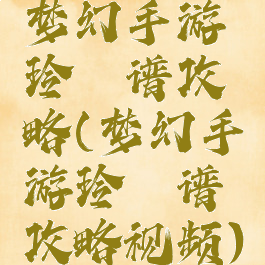 梦幻手游
玲 谱攻
略(梦幻手
游玲 谱
攻略视频)